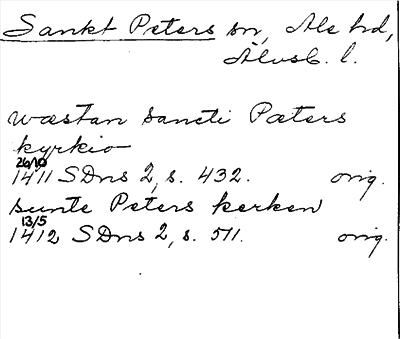 Sankt Peters sn, Ale hd,
Älvsb. l.
wæstan sancti Pæters
kyrkio
26/10
1411 SDns 2, s. 432. orig.
sunte Peters kerken
13/5
1412 SDns 2, s. 511. orig.